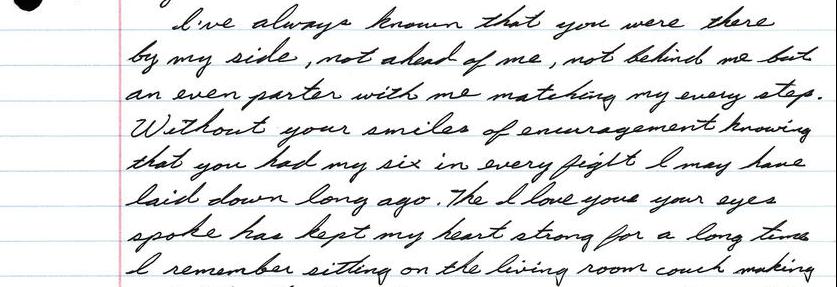 I've always known that you were there
by my side, not ahead of me, not behind me but
an even parter with me matching my every step.
Without your smiles of encuragement knowing
that you had my six in every fight I may have
laid down long ago. The I love yous your eyes
spoke has kept my heart strong for a long time
I remember sitting on the living room couch making